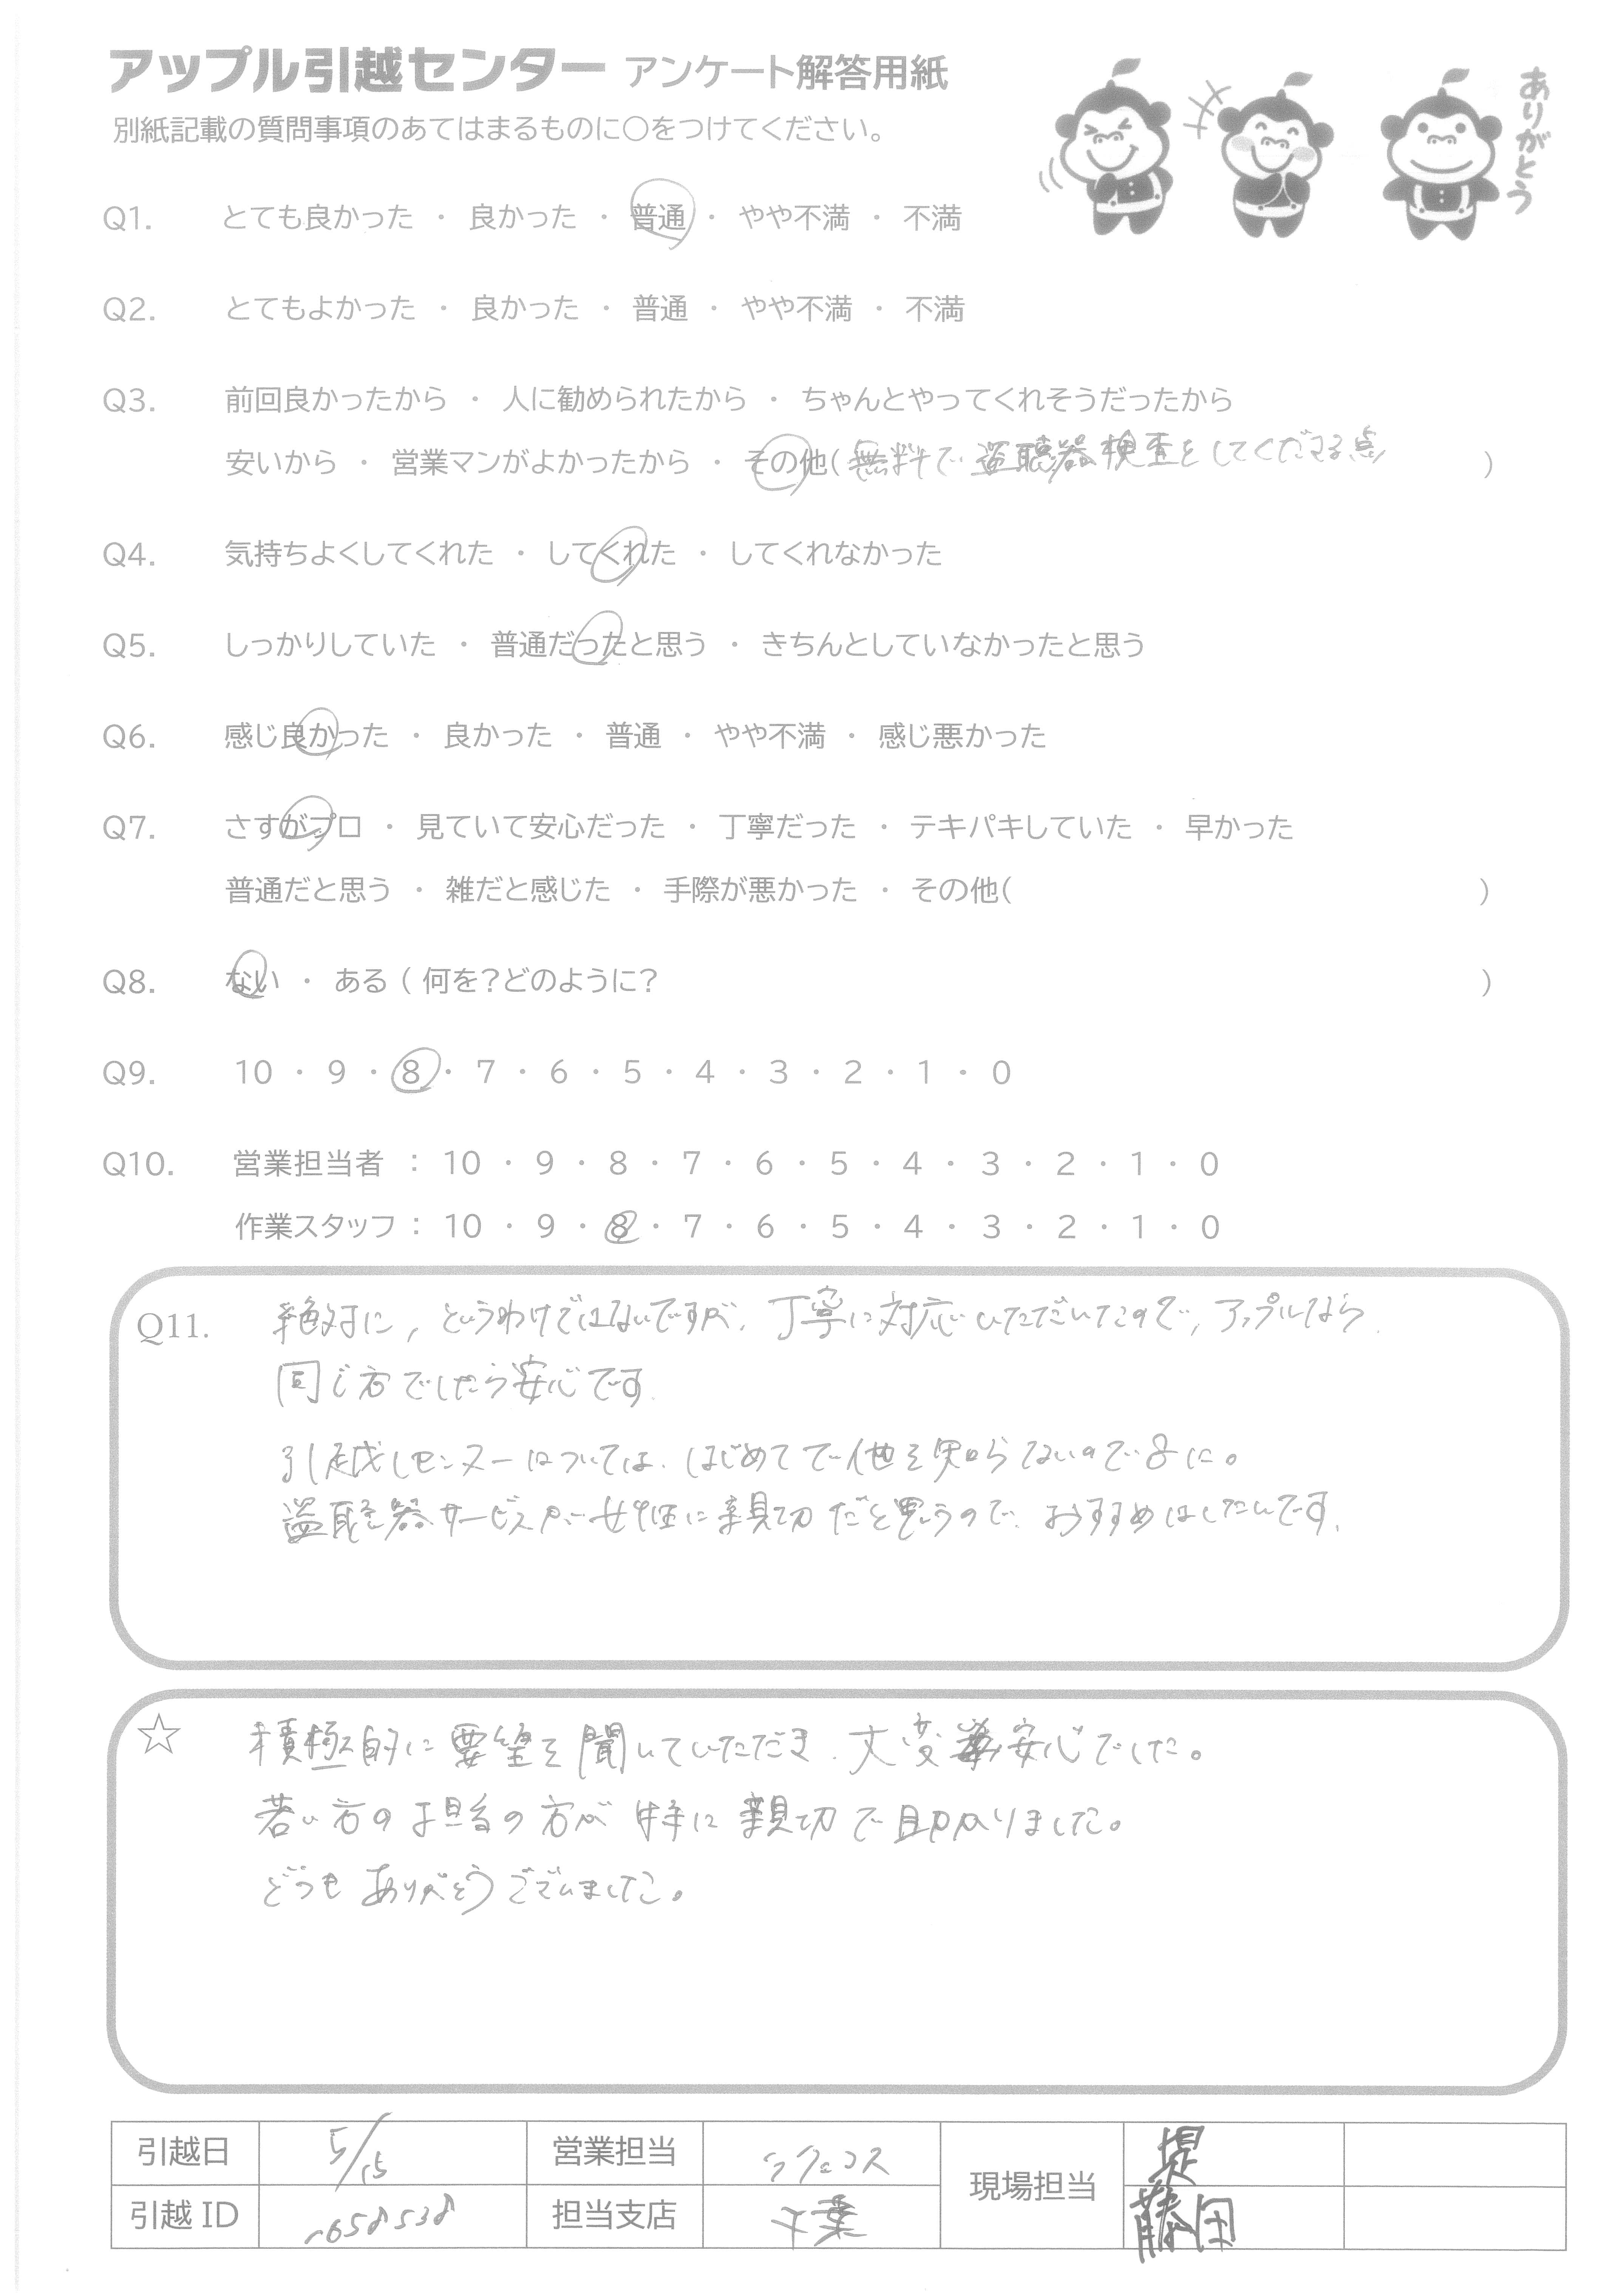 アップル引越センター アンケート解答用紙
別紙記載の質問事項のあてはまるものに○をつけてください。
ありがとう
Q1. とても良かった ・ 良かった ・ 普通 ・ やや不満 ・ 不満
Q2. とてもよかった ・ 良かった ・ 普通 ・ やや不満 ・ 不満
Q3. 前回良かったから ・ 人に勧められたから ・ ちゃんとやってくれそうだったから
安いから ・ 営業マンがよかったから ・ その他( 無料で盗聴器検査をしてくださる点 )
Q4. 気持ちよくしてくれた ・ してくれた ・ してくれなかった
Q5. しっかりしていた ・ 普通だったと思う ・ きちんとしていなかったと思う
Q6. 感じ良かった ・ 良かった ・ 普通 ・ やや不満 ・ 感じ悪かった
Q7. さすがプロ ・ 見ていて安心だった ・ 丁寧だった ・ テキパキしていた ・ 早かった
普通だと思う ・ 雑だと感じた ・ 手際が悪かった ・ その他( )
Q8. ない ・ ある ( 何を?どのように? )
Q9. 10 ・ 9 ・ 8 ・ 7 ・ 6 ・ 5 ・ 4 ・ 3 ・ 2 ・ 1 ・ 0
Q10. 営業担当者 : 10 ・ 9 ・ 8 ・ 7 ・ 6 ・ 5 ・ 4 ・ 3 ・ 2 ・ 1 ・ 0
作業スタッフ : 10 ・ 9 ・ 8 ・ 7 ・ 6 ・ 5 ・ 4 ・ 3 ・ 2 ・ 1 ・ 0
Q11. 絶対に,というわけではないですが、丁寧に対応いただいたので,アップルなら
同じ方でしたら安心です
引越しセンターについては、はじめてで他を知らないので8に。
盗聴器サービスが女性に親切だと思うので、おすすめはしたいです。
☆ 積極的に要望を聞いていただき、大変安心でした。
若い方の担当の方が特に親切で助かりました。
どうもありがとうございました。
引越日 5/15 営業担当 現場担当 堤
引越 ID 1658538 担当支店 千葉 藤田